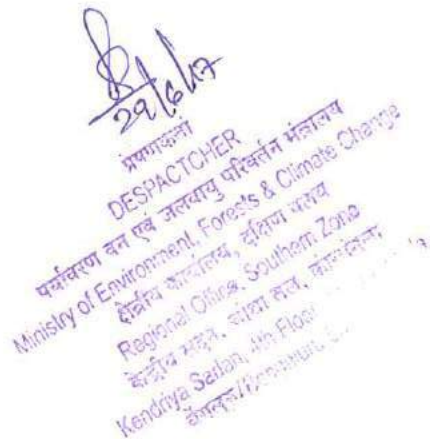 29/6/17
DESPACTCHER
पर्यावरण वन एवं जलवायु परिवर्तन मंत्रालय
Ministry of Environment, Forests & Climate Change
क्षेत्रीय कार्यालय, दक्षिण
Regional Office, Southern Zone
केन्द्रीय सदन,
Kendriya Sadan, 4th Floor